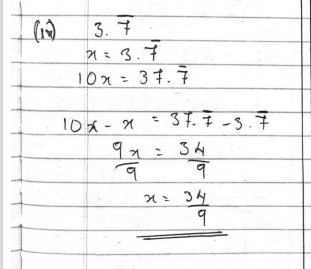 (ix) 3.7̅
x = 3.7̅
10x = 37.7̅
10x - x = 37.7̅ - 3.7̅
9x/9 = 34/9
x = 34/9